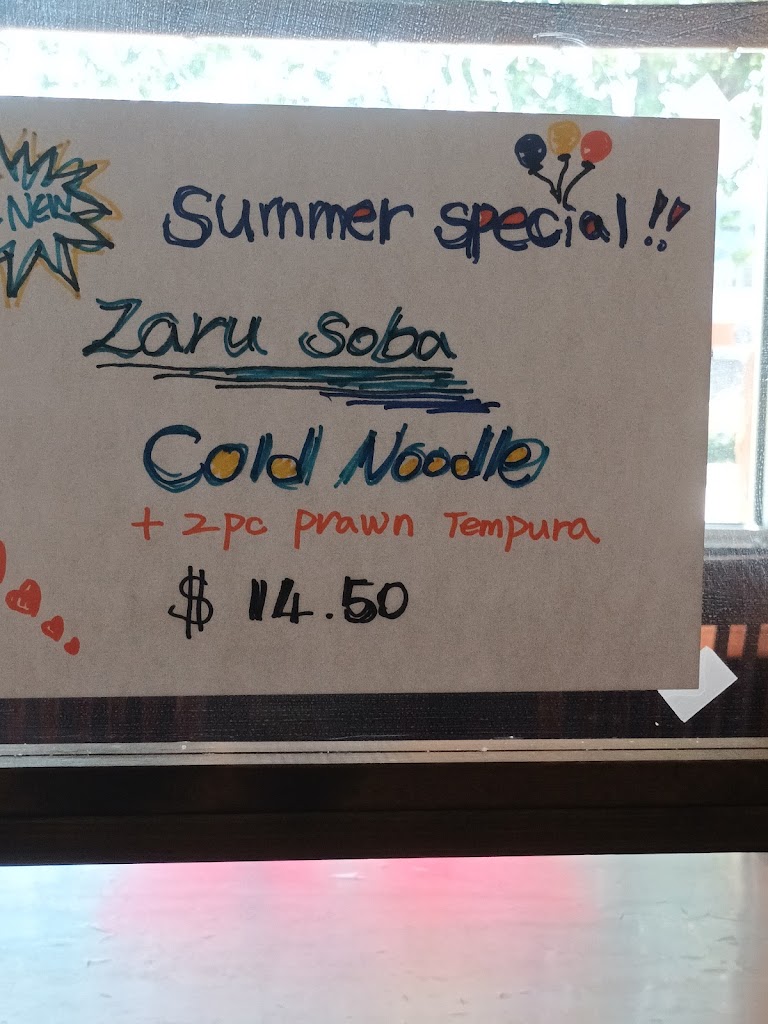 NEW
Summer special!!
Zaru Soba
Cold Noodle
+ 2pc Prawn Tempura
$ 14.50